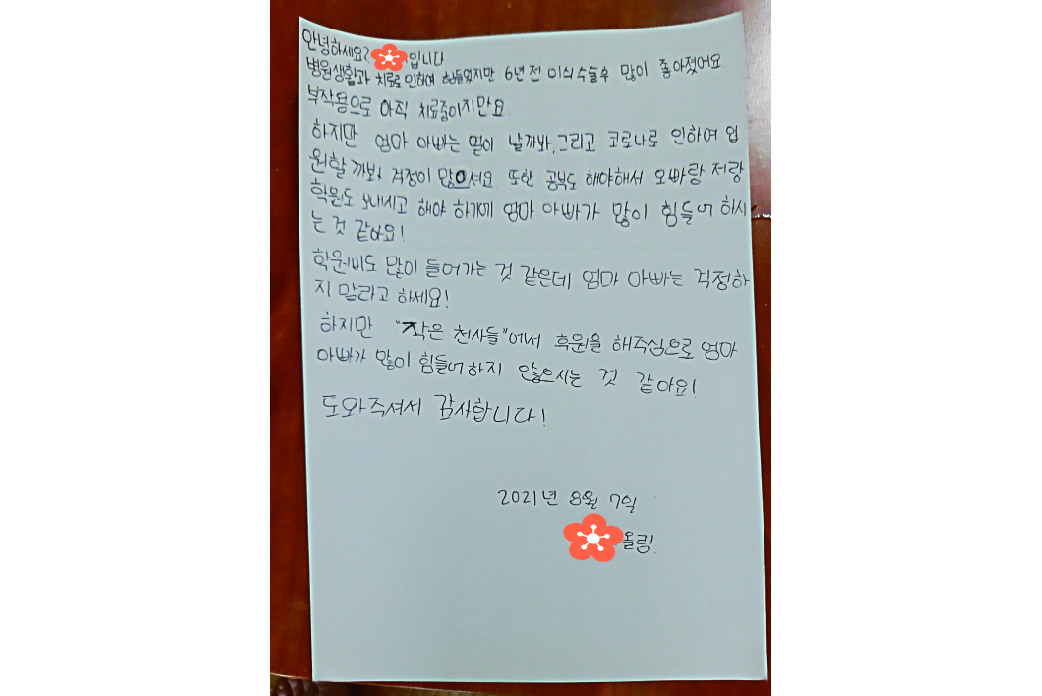 안녕하세요? 입니다
병원생활과 치료로 인하여 힘들었지만 6년전 이식수술후 많이 좋아졌어요.
부작용으로 아직 치료중이지만요.
하지만 엄마 아빠는 열이 날까봐, 그리고 코로나로 인하여 입
원할 까봐 걱정이 많으셔요. 또한 공부도 해야해서 오빠랑 저랑
학원도 보내시고 해야 하기에 엄마 아빠가 많이 힘들어 하시
는 것 같아요!
학원비도 많이 들어가는 것 같은데 엄마 아빠는 걱정하
지 말라고 하세요!
하지만 "작은 천사들"에서 후원을 해주심으로 엄마
아빠가 많이 힘들어하지 않으시는 것 같아요!
도와주셔서 감사합니다!
2021년 8월 7일
올림.